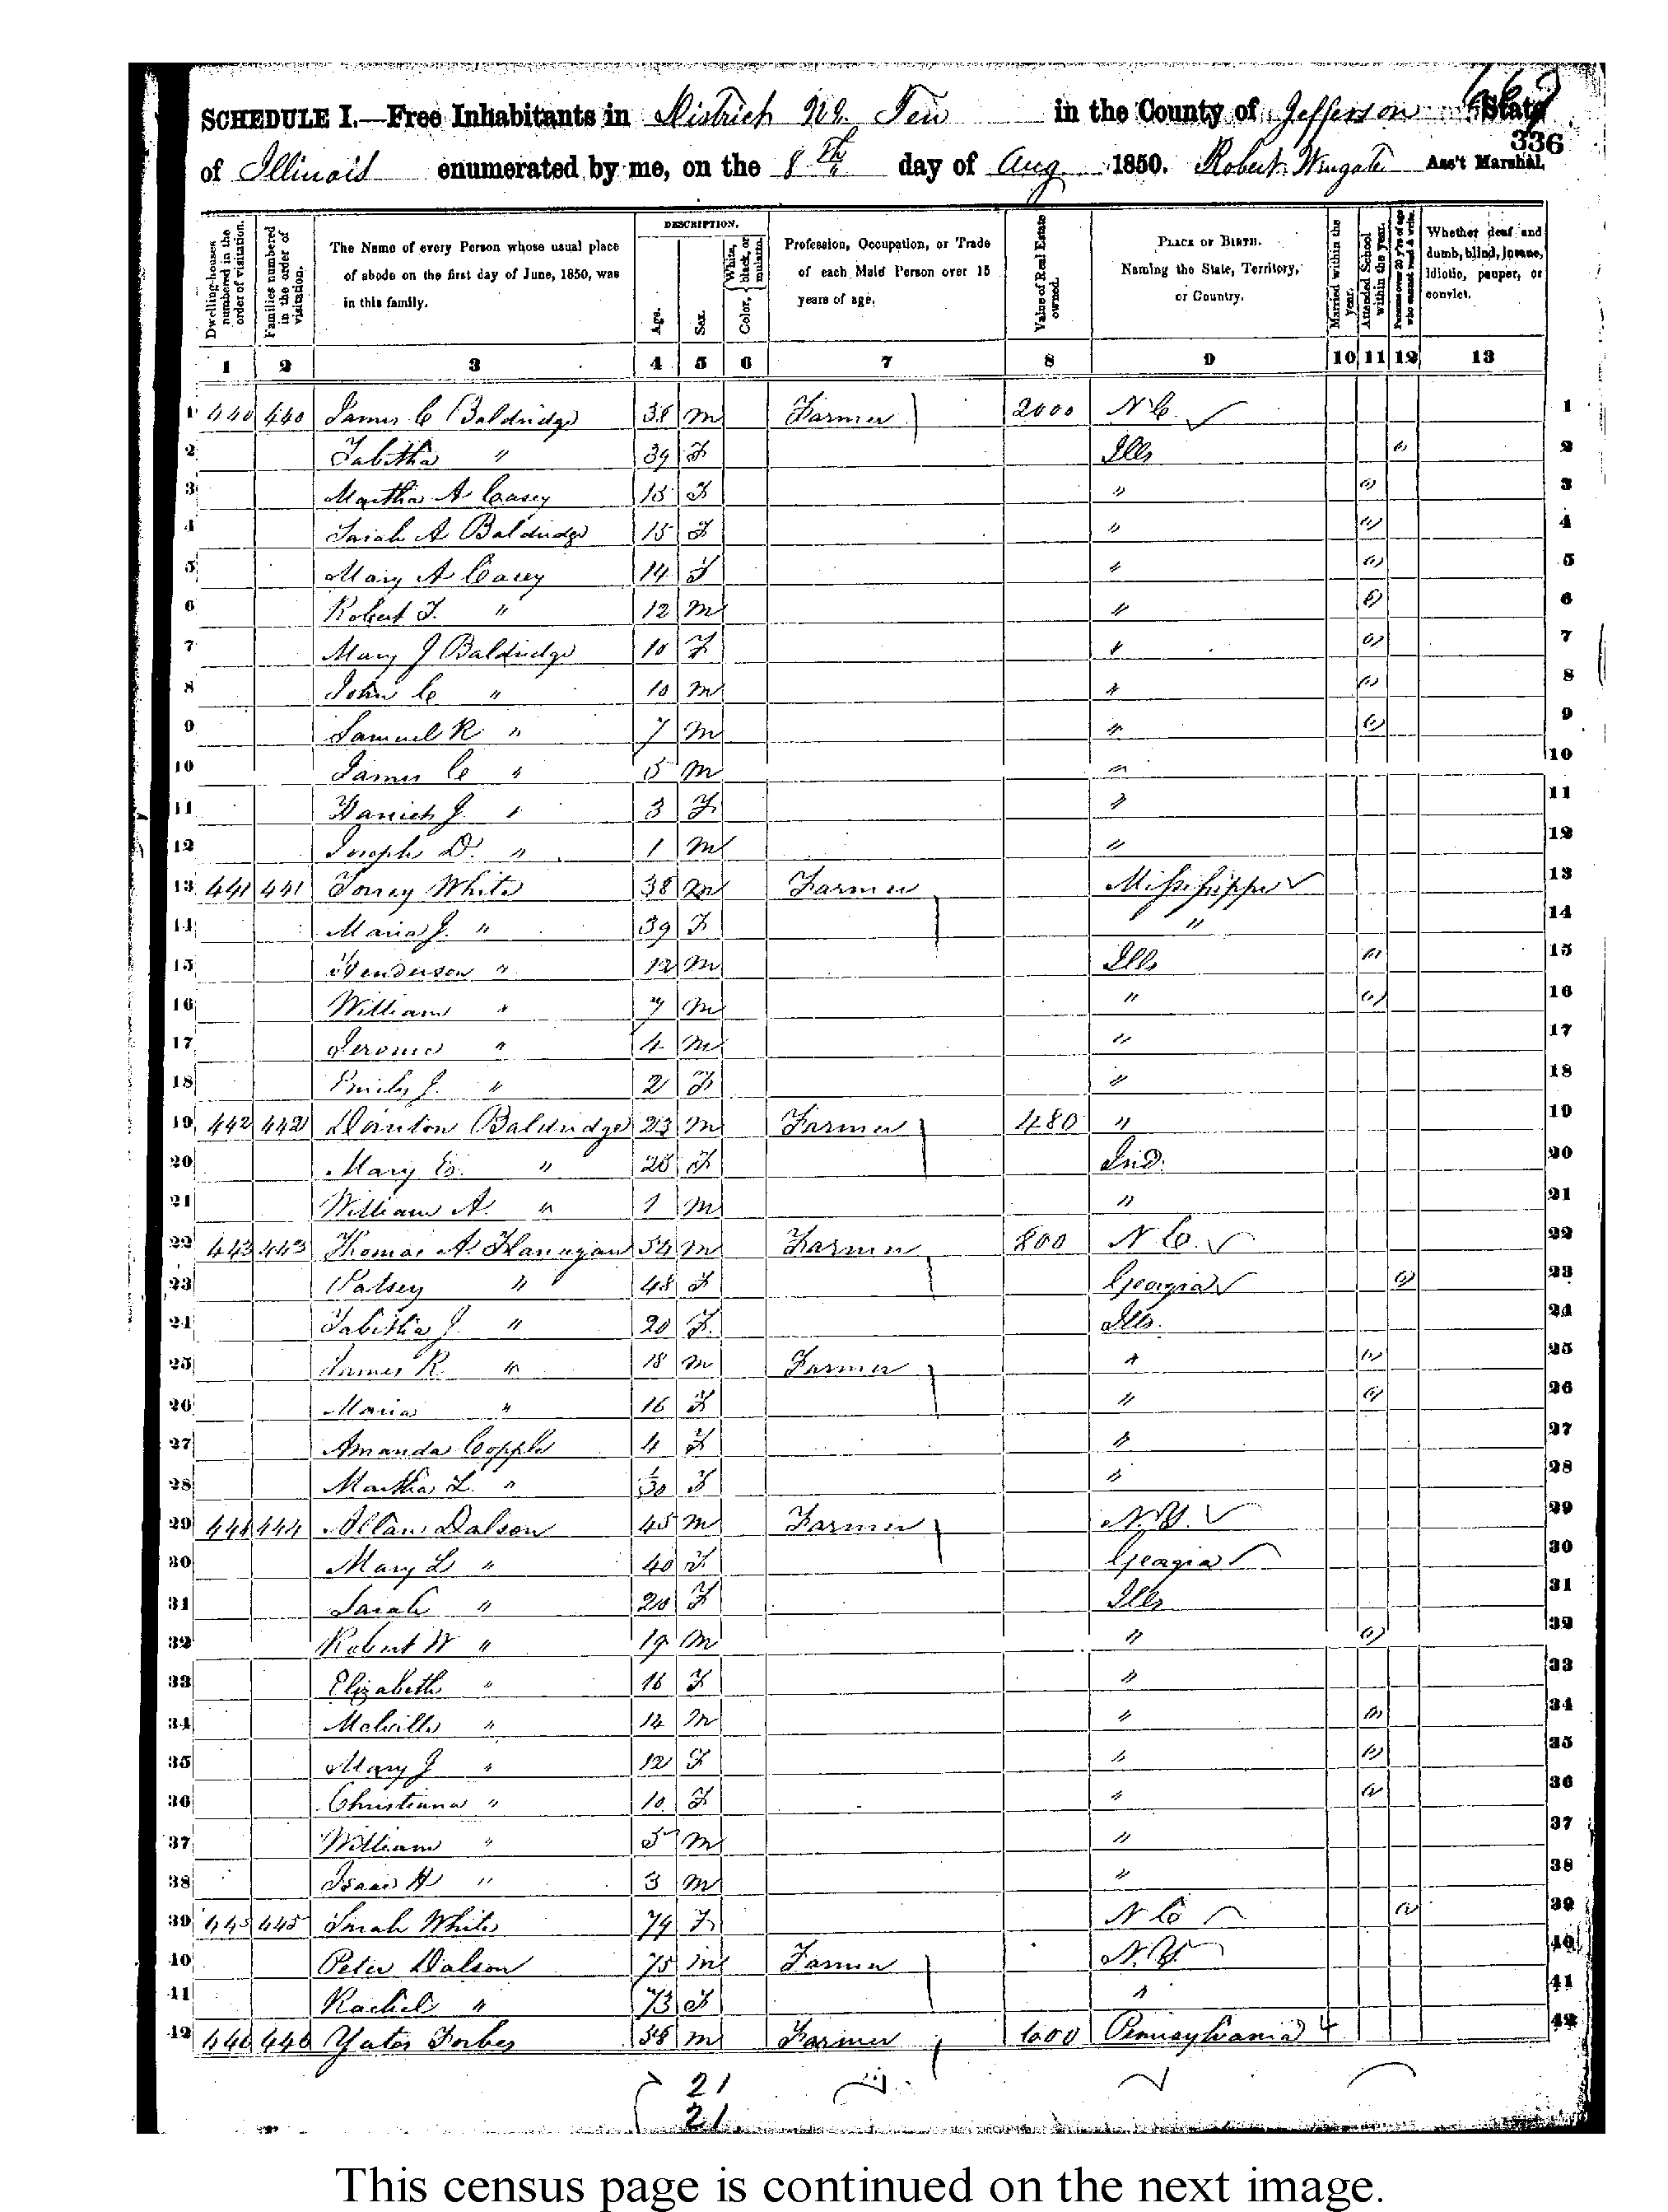 669
SCHEDULE I.—Free Inhabitants in District No. Ten in the County of Jefferson State
336
of Illinois enumerated by me, on the 8th day of Aug 1850. Robert Wingate Ass't Marshal.
Dwelling-houses numbered in the order of visitation. Families numbered in the order of visitation. The Name of every Person whose usual place of abode on the first day of June, 1850, was in this family. DESCRIPTION. Age. Sex. Color, White, black, or mulatto. Profession, Occupation, or Trade of each Male Person over 15 years of age. Value of Real Estate owned. PLACE OF BIRTH. Naming the State, Territory, or Country. Married within the year. Attended School within the year. Persons over 20 y'rs of age who cannot read & write. Whether deaf and dumb, blind, insane, idiotic, pauper, or convict.
1 2 3 4 5 6 7 8 9 10 11 12 13
1 440 440 James C Baldridge 38 M Farmer 2000 N C. 1
2 Tabitha " 39 F Ills 2
3 Martha A Casey 15 F " 3
4 Sarah A Baldridge 15 F " 4
5 Mary A Casey 14 F " 5
6 Robert F. " 12 M " 6
7 Mary J Baldridge 10 F " 7
8 John C " 10 M " 8
9 Samuel R " 7 M " 9
10 James C " 5 M " 10
11 Harriet J. " 3 F " 11
12 Joseph D. " 1 M " 12
13 441 441 White 38 M Farmer Mississippi 13
14 Maria J. " 39 F " 14
15 Henderson " 12 M Ills 15
16 William " 7 M " 16
17 Jerome " 4 M " 17
18 Emily J. " 2 F " 18
19 442 442 Baldridge 23 M Farmer 480 " 19
20 Mary E. " 25 F Ind. 20
21 William A " 1 M " 21
22 443 443 Thomas A Flanagan 54 M Farmer 800 N C. 22
23 Patsey " 48 F Georgia 23
24 Tabitha J. " 20 F. Ills. 24
25 James R. " 18 M Farmer " 25
26 Maria " 16 F " 26
27 Amanda Copple 4 F " 27
28 Martha L. " 1/30 F " 28
29 444 444 Allan Dalson 45 M Farmer N.Y. 29
30 Mary L " 40 F Georgia 30
31 Sarah " 20 F Ills 31
32 Robert W " 19 M " 32
33 Elizabeth " 16 F " 33
34 Melville " 14 M " 34
35 Mary J " 12 F " 35
36 Christiana " 10 F " 36
37 William " 5 M " 37
38 Isaac H " 3 M " 38
39 445 445 Sarah White 74 F N C 39
40 Peter Dalson 75 M Farmer N.Y. 40
41 Rachel " 73 F " 41
42 446 446 Yates Forbes 58 M Farmer 1000 Pennsylvania 42
21
21
This census page is continued on the next image.